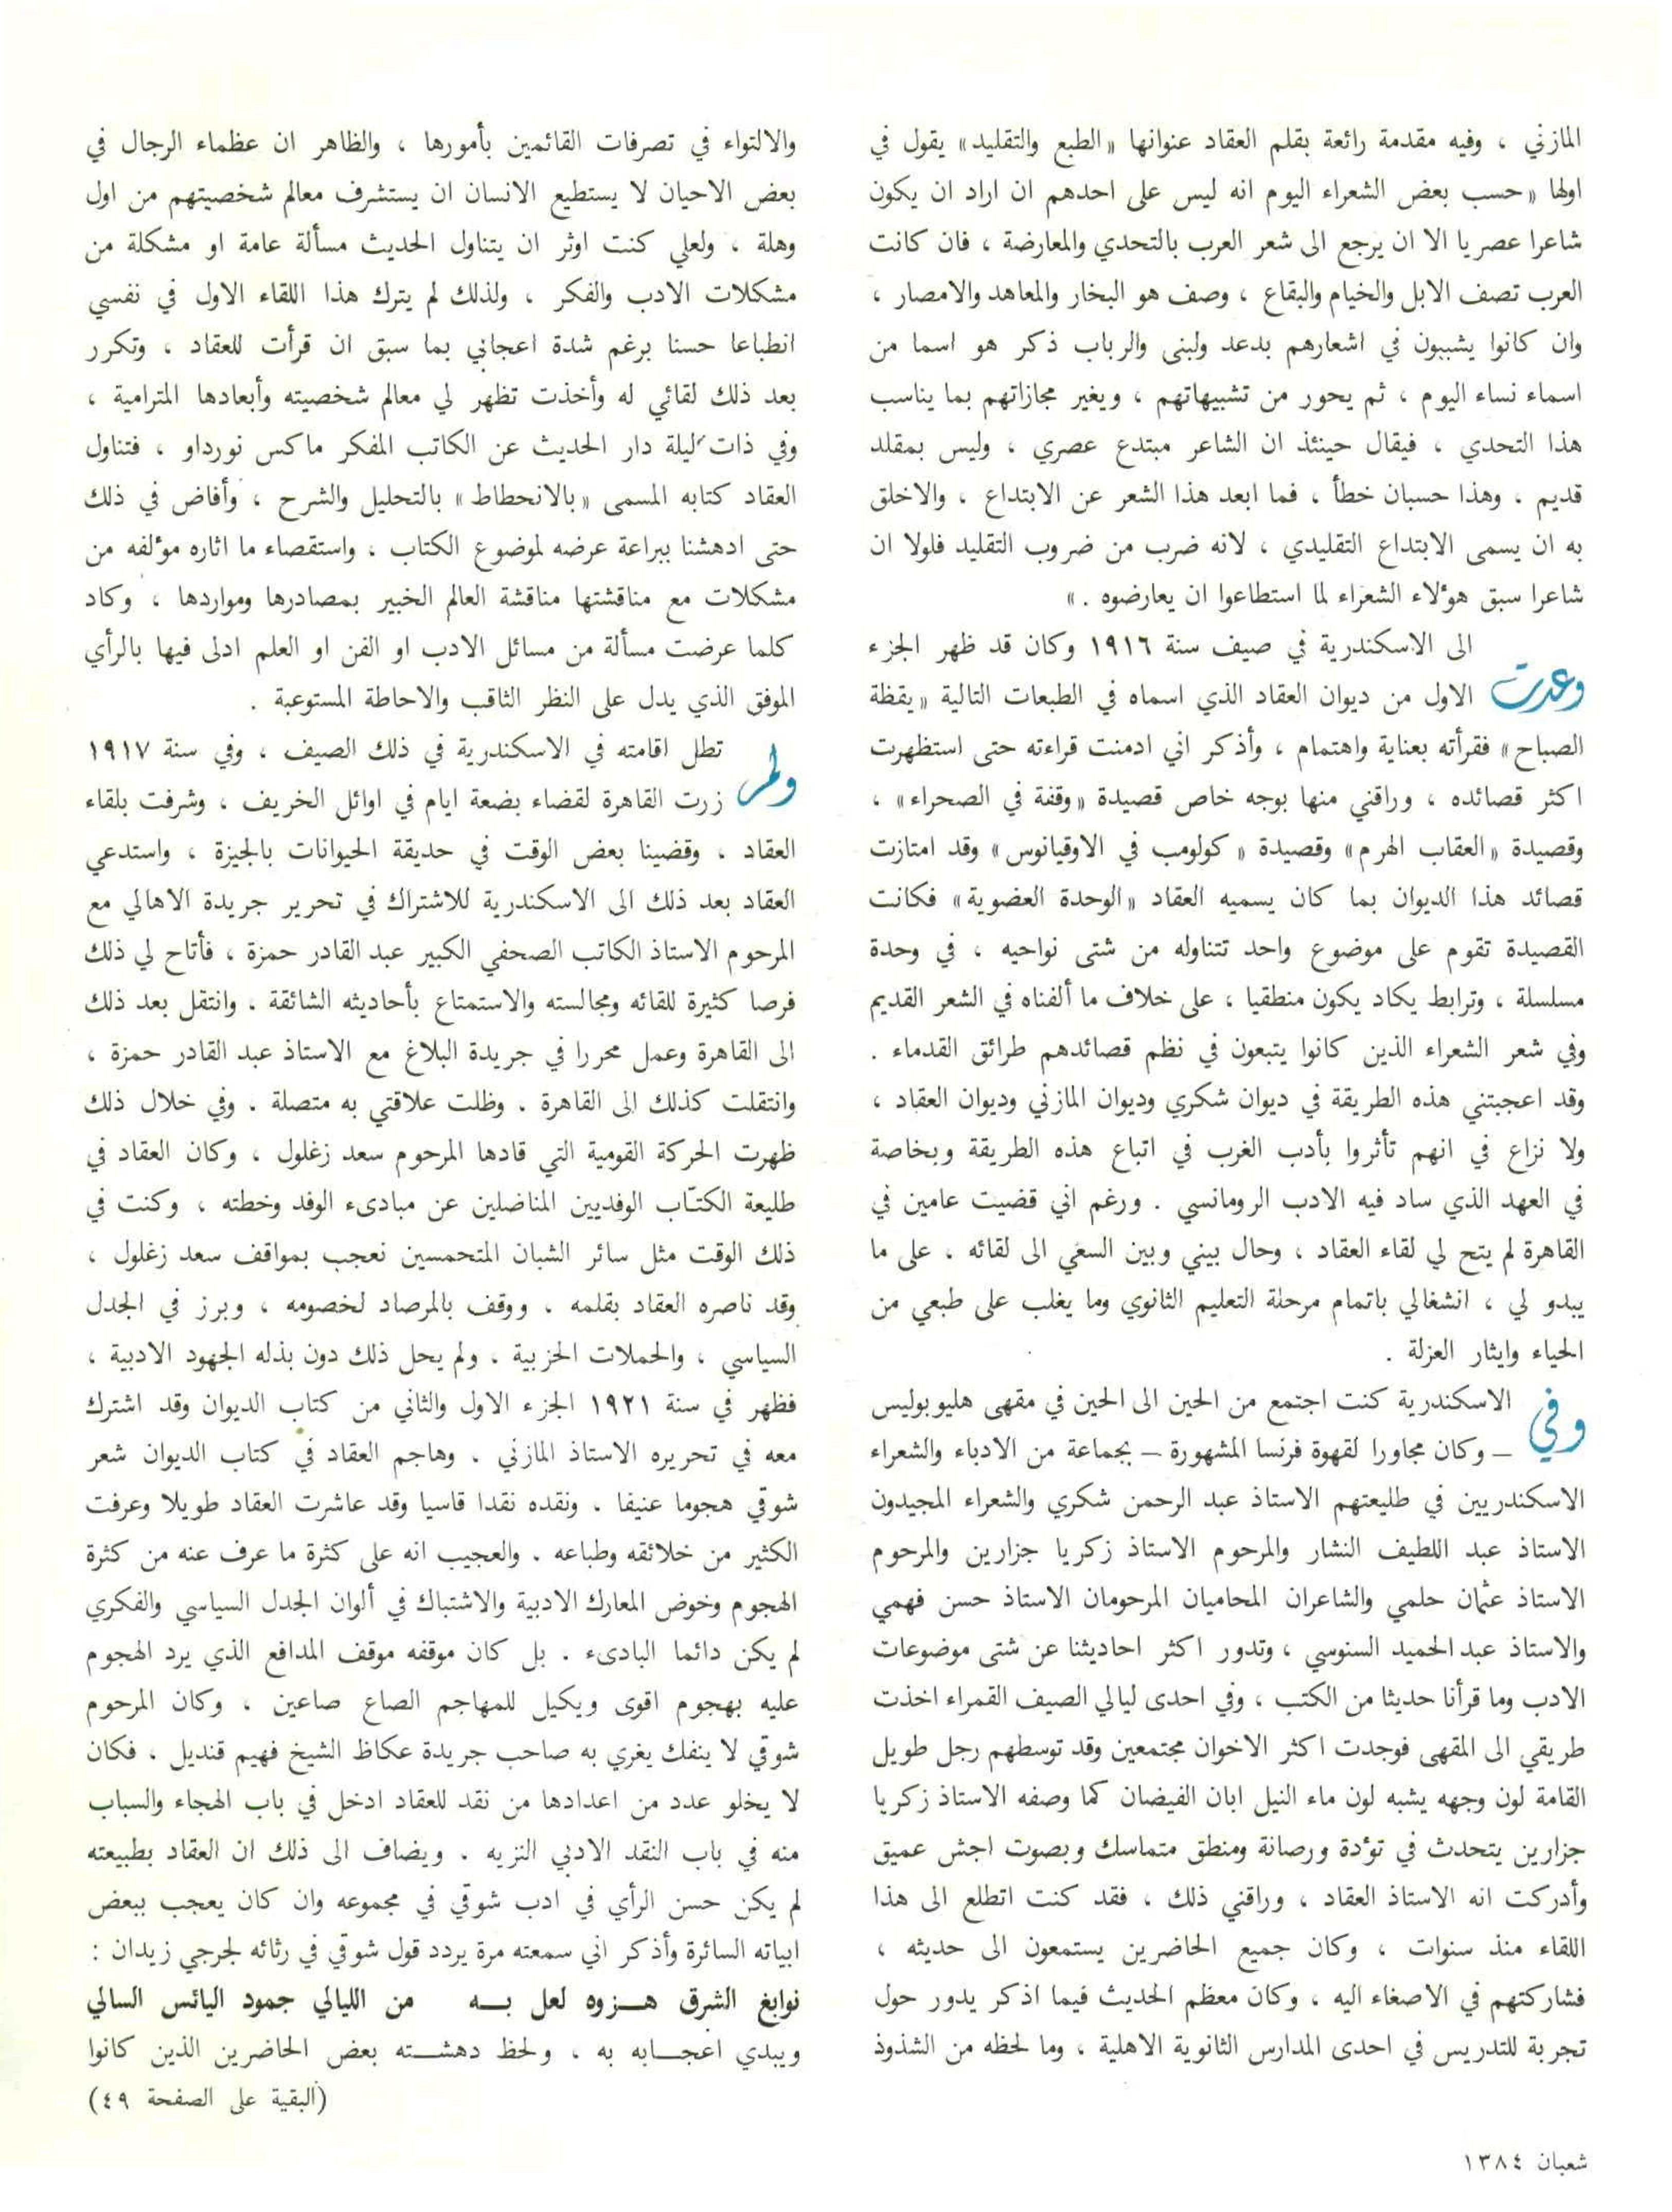 المازني ، وفيه مقدمة رائعة بقلم العقاد عنوانها «الطبع والتقليد» يقول في
اولها « حسب بعض الشعراء اليوم انه ليس على احدهم ان اراد ان يكون
شاعرا عصريا الا ان يرجع الى شعر العرب بالتحدي والمعارضة ، فان كانت
العرب تصف الابل والخيام والبقاع ، وصف هو البخار والمعاهد والامصار ،
وان كانوا يشببون في اشعارهم بدعد ولبنى والرباب ذكر هو اسما من
اسماء نساء اليوم ، ثم يحور من تشبيهاتهم ، ويغير مجازاتهم بما يناسب
هذا التحدي ، فيقال حينئذ ان الشاعر مبتدع عصري ، وليس بمقلد
قديم ، وهذا حسبان خطأ ، فما ابعد هذا الشعر عن الابتداع ، والاخلق
به ان يسمى الابتداع التقليدي ، لانه ضرب من ضروب التقليد فلولا ان
شاعرا سبق هؤلاء الشعراء لما استطاعوا ان يعارضوه . »
وعدت الى الاسكندرية في صيف سنة ١٩١٦ وكان قد ظهر الجزء
الاول من ديوان العقاد الذي اسماه في الطبعات التالية «يقظة
الصباح» فقرأته بعناية واهتمام ، وأذكر اني ادمنت قراءته حتى استظهرت
اكثر قصائده ، وراقني منها بوجه خاص قصيدة «وقفة في الصحراء» ،
وقصيدة «العقاب الهرم» وقصيدة « كولومب في الاوقيانوس» وقد امتازت
قصائد هذا الديوان بما كان يسميه العقاد «الوحدة العضوية» فكانت
القصيدة تقوم على موضوع واحد تتناوله من شتى نواحيه ، في وحدة
مسلسلة ، وترابط يكاد يكون منطقيا ، على خلاف ما ألفناه في الشعر القديم
وفي شعر الشعراء الذين كانوا يتبعون في نظم قصائدهم طرائق القدماء .
وقد اعجبتني هذه الطريقة في ديوان شكري وديوان المازني وديوان العقاد ،
ولا نزاع في انهم تأثروا بأدب الغرب في اتباع هذه الطريقة وبخاصة
في العهد الذي ساد فيه الادب الرومانسي . ورغم اني قضيت عامين في
القاهرة لم يتح لي لقاء العقاد ، وحال بيني وبين السعي الى لقائه ، على ما
يبدو لي ، انشغالي باتمام مرحلة التعليم الثانوي وما يغلب على طبعي من
الحياء وايثار العزلة .
وفي الاسكندرية كنت اجتمع من الحين الى الحين في مقهى هليوبوليس
– وكان مجاورا لقهوة فرنسا المشهورة – بجماعة من الادباء والشعراء
الاسكندريين في طليعتهم الاستاذ عبد الرحمن شكري والشعراء المجيدون
الاستاذ عبد اللطيف النشار والمرحوم الاستاذ زكريا جزارين والمرحوم
الاستاذ عثمان حلمي والشاعران المحاميان المرحومان الاستاذ حسن فهمي
والاستاذ عبد الحميد السنوسي ، وتدور اكثر احاديثنا عن شتى موضوعات
الادب وما قرأنا حديثا من الكتب ، وفي احدى ليالي الصيف القمراء اخذت
طريقي الى المقهى فوجدت اكثر الاخوان مجتمعين وقد توسطهم رجل طويل
القامة لون وجهه يشبه لون ماء النيل ابان الفيضان كما وصفه الاستاذ زكريا
جزارين يتحدث في تؤدة ورصانة ومنطق متماسك وبصوت اجش عميق
وأدركت انه الاستاذ العقاد ، وراقني ذلك ، فقد كنت اتطلع الى هذا
اللقاء منذ سنوات ، وكان جميع الحاضرين يستمعون الى حديثه ،
فشاركتهم في الاصغاء اليه ، وكان معظم الحديث فيما اذكر يدور حول
تجربة للتدريس في احدى المدارس الثانوية الاهلية ، وما لحظه من الشذوذ
والالتواء في تصرفات القائمين بأمورها ، والظاهر ان عظماء الرجال في
بعض الاحيان لا يستطيع الانسان ان يستشرف معالم شخصيتهم من اول
وهلة ، ولعلي كنت اوثر ان يتناول الحديث مسألة عامة او مشكلة من
مشكلات الادب والفكر ، ولذلك لم يترك هذا اللقاء الاول في نفسي
انطباعا حسنا برغم شدة اعجابي بما سبق ان قرأت للعقاد ، وتكرر
بعد ذلك لقائي له وأخذت تظهر لي معالم شخصيته وأبعادها المترامية ،
وفي ذات ليلة دار الحديث عن الكاتب المفكر ماكس نورداو ، فتناول
العقاد كتابه المسمى «بالانحطاط» بالتحليل والشرح ، وأفاض في ذلك
حتى ادهشنا ببراعة عرضه لموضوع الكتاب ، واستقصاء ما اثاره مؤلفه من
مشكلات مع مناقشتها مناقشة العالم الخبير بمصادرها ومواردها ، وكاد
كلما عرضت مسألة من مسائل الادب او الفن او العلم ادلى فيها بالرأي
الموفق الذي يدل على النظر الثاقب والاحاطة المستوعبة .
ولم تطل اقامته في الاسكندرية في ذلك الصيف ، وفي سنة ١٩١٧
زرت القاهرة لقضاء بضعة ايام في اوائل الخريف ، وشرفت بلقاء
العقاد ، وقضينا بعض الوقت في حديقة الحيوانات بالجيزة ، واستدعي
العقاد بعد ذلك الى الاسكندرية للاشتراك في تحرير جريدة الاهالي مع
المرحوم الاستاذ الكاتب الصحفي الكبير عبد القادر حمزة ، فأتاح لي ذلك
فرصا كثيرة للقائه ومجالسته والاستمتاع بأحاديثه الشائقة . وانتقل بعد ذلك
الى القاهرة وعمل محررا في جريدة البلاغ مع الاستاذ عبد القادر حمزة ،
وانتقلت كذلك الى القاهرة . وظلت علاقتي به متصلة . وفي خلال ذلك
ظهرت الحركة القومية التي قادها المرحوم سعد زغلول ، وكان العقاد في
طليعة الكتّاب الوفديين المناضلين عن مبادىء الوفد وخطته ، وكنت في
ذلك الوقت مثل سائر الشبان المتحمسين نعجب بمواقف سعد زغلول ،
وقد ناصره العقاد بقلمه ، ووقف بالمرصاد لخصومه ، وبرز في الجدل
السياسي ، والحملات الحزبية ، ولم يحل ذلك دون بذله الجهود الادبية ،
فظهر في سنة ١٩٢١ الجزء الاول والثاني من كتاب الديوان وقد اشترك
معه في تحريره الاستاذ المازني . وهاجم العقاد في كتاب الديوان شعر
شوقي هجوما عنيفا ، ونقده نقدا قاسيا وقد عاشرت العقاد طويلا وعرفت
الكثير من خلائقه وطباعه . والعجيب انه على كثرة ما عرف عنه من كثرة
الهجوم وخوض المعارك الادبية والاشتباك في ألوان الجدل السياسي والفكري
لم يكن دائما البادىء . بل كان موقفه موقف المدافع الذي يرد الهجوم
عليه بهجوم اقوى ويكيل للمهاجم الصاع صاعين ، وكان المرحوم
شوقي لا ينفك يغري به صاحب جريدة عكاظ الشيخ فهيم قنديل ، فكان
لا يخلو عدد من اعدادها من نقد للعقاد ادخل في باب الهجاء والسباب
منه في باب النقد الادبي النزيه . ويضاف الى ذلك ان العقاد بطبيعته
لم يكن حسن الرأي في ادب شوقي في مجموعه وان كان يعجب ببعض
ابياته السائرة وأذكر اني سمعته مرة يردد قول شوقي في رثائه لجرجي زيدان :
نوابغ الشرق هــزوه لعل بــه من الليالي جمود اليائس السالي
ويبدي اعجــابه به ، ولحظ دهشــته بعض الحاضرين الذين كانوا
(البقية على الصفحة ٤٩)
شعبان ١٣٨٤